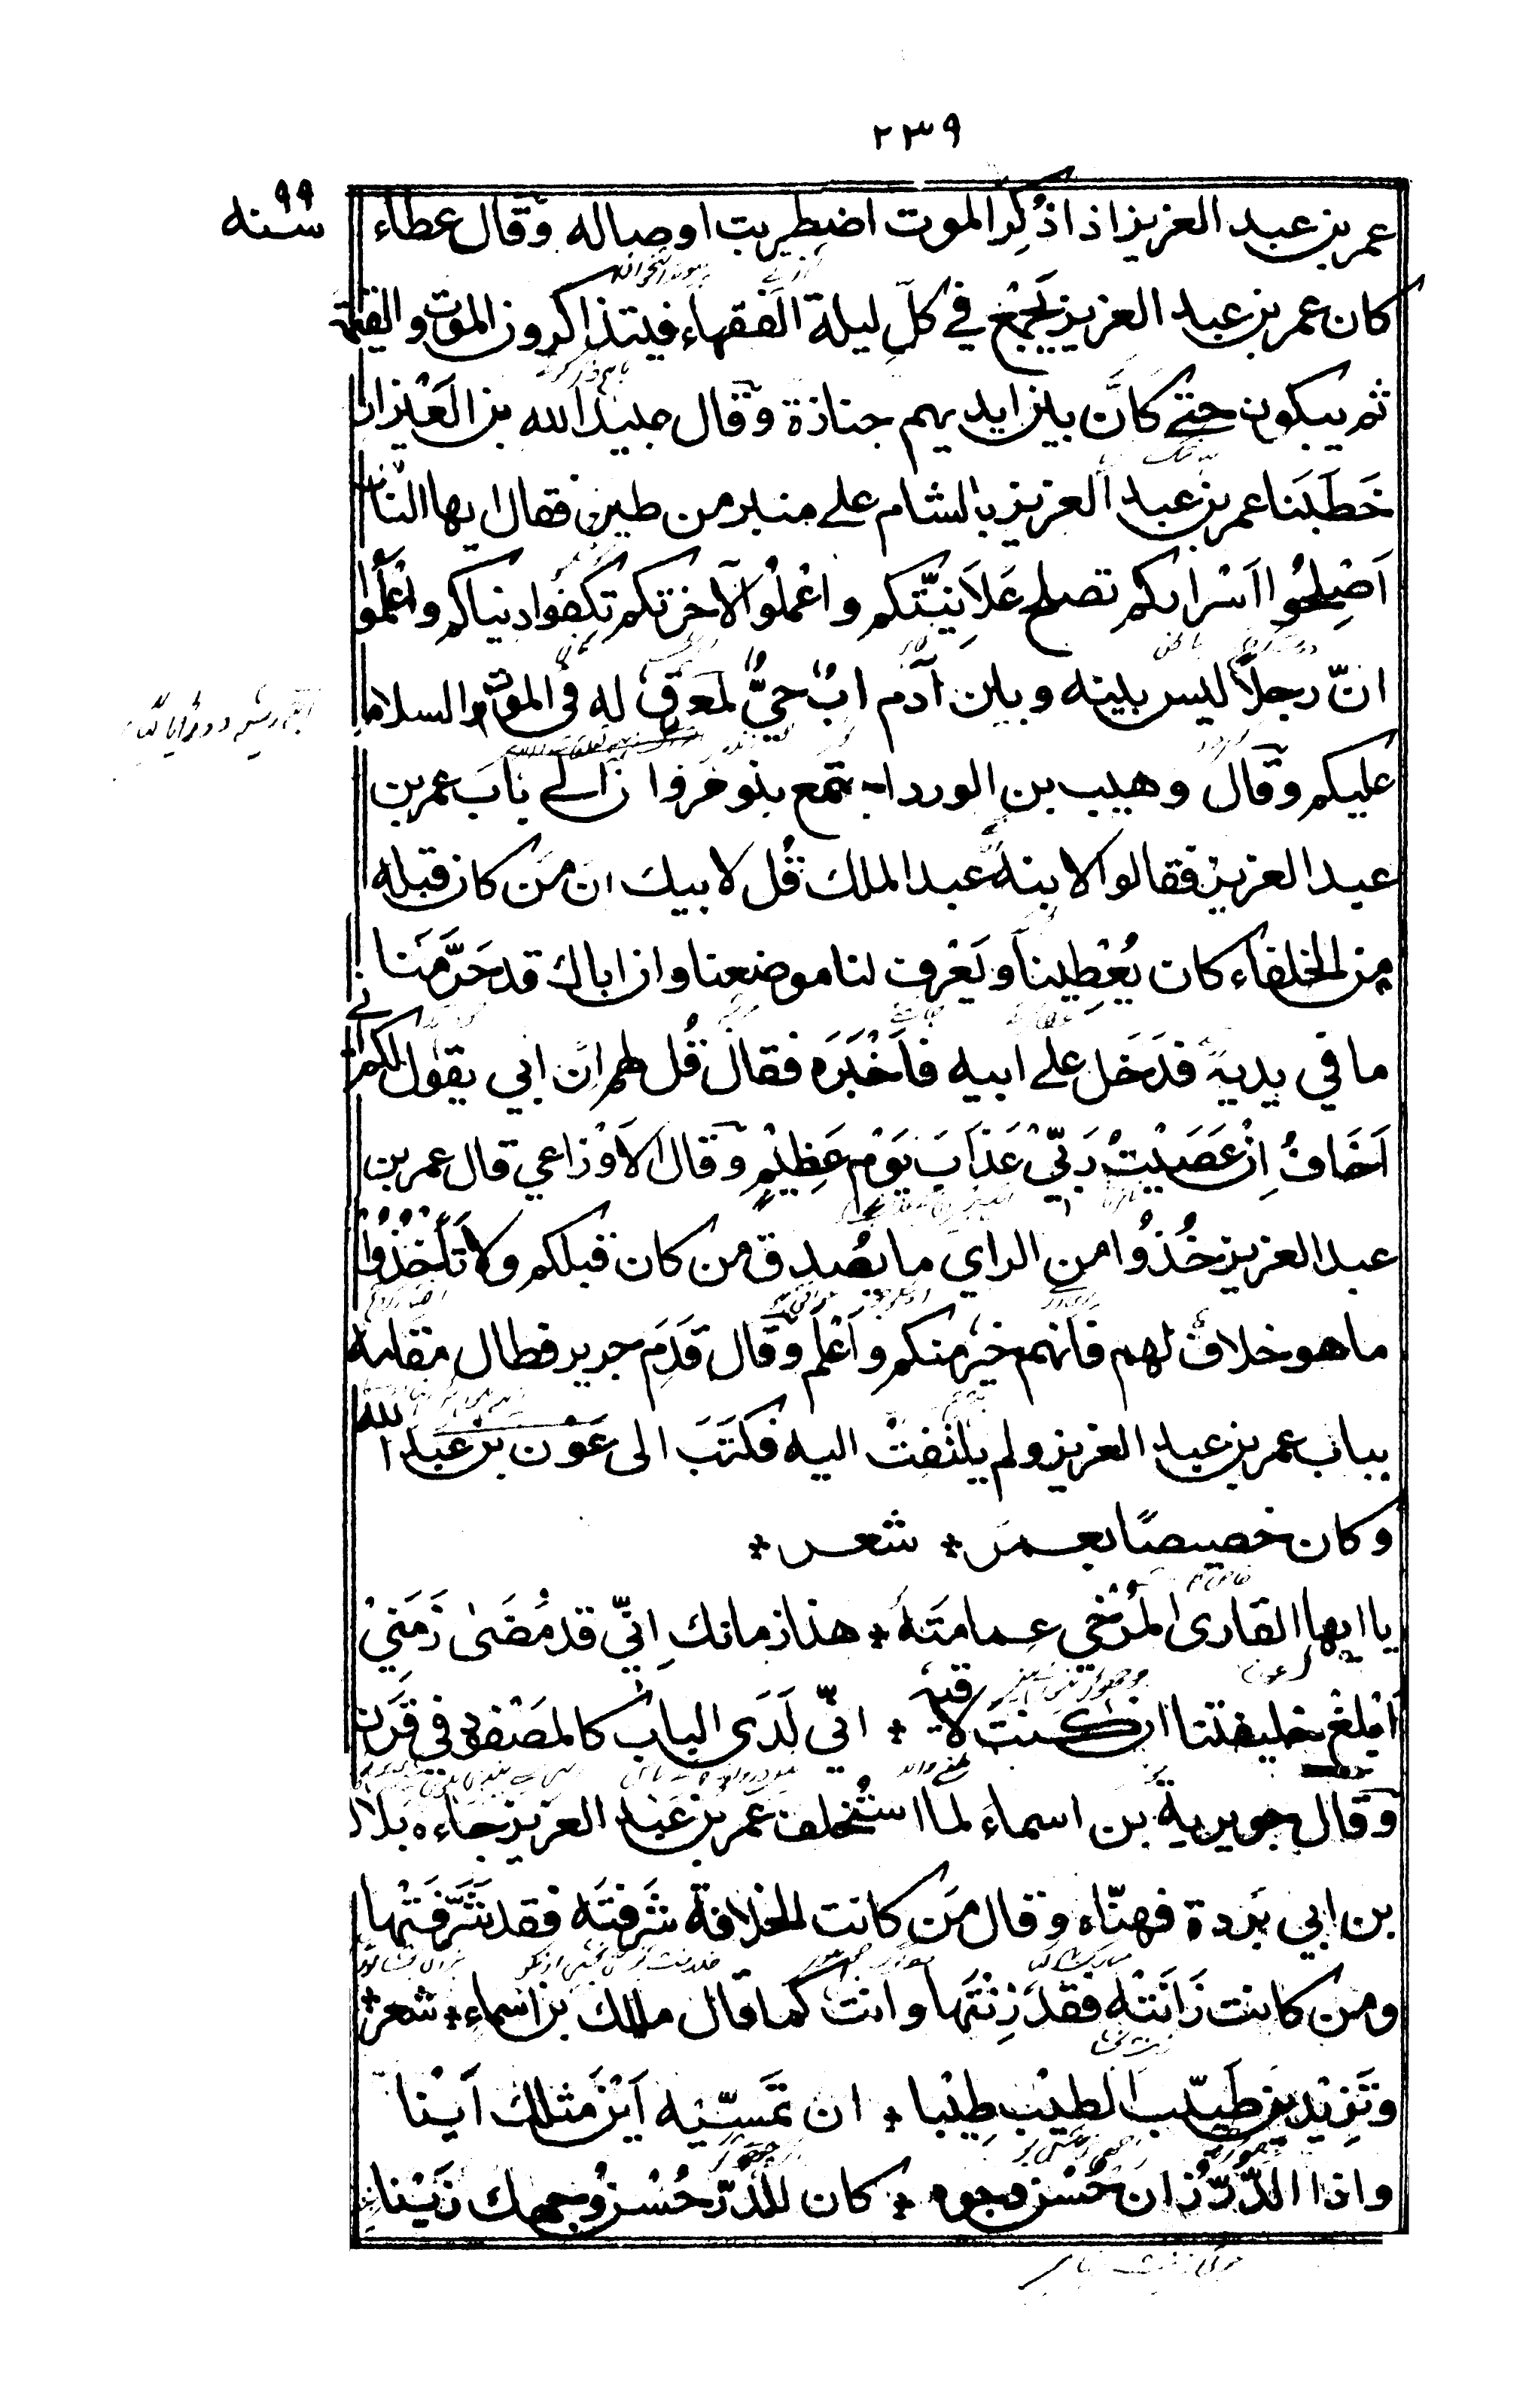 ٢٣٩
سنه ٩٩
عمر بن عبد العزيز اذا ذُكِر الموت اضطربت اوصاله وقال عطاء
كان عمر بن عبد العزيز يَجمع في كلّ ليلة الفقهاء فيتذاكرون الموت والقيٰمة
ثم يبكون حتى كانّ بين ايديهم جنازة وقال عبيد الله بن العَيْزار
خَطَبَنا عمر بن عبد العزيز بالشام على منبر من طين فقال ايها الناس
اَصْلِحُوا اَسْراركم تصلح عَلاَنِيَتكم واعْملُوا لآخرتكم تكفوا دنياكم واعْلَموا
انّ رجلاً ليس بينه وبين آدم ابٌ حيٌّ لمعرق له فى الموت والسلام
عليكم وقال وهيب بن الورد اجتمع بنو مروان الى باب عمر بن
عبد العزيز فقالوا لابنه عبد الملك قُل لابيك ان مَن كان قبله
من الخلفاء كان يُعْطِينا ويَعْرف لنا موضعنا وان اباك قد حَرَّمَنا
ما في يديه فدَخَل على ابيه فاَخْبَرَه فقال قُل لهم انّ ابي يقول لكم انى
اَخَافُ اِنْ عَصَيْتُ رَبِّيْ عَذَابَ يَوْمٍ عَظِيْمٍ وقال الاَوْزاعي قال عمر بن
عبد العزيز خُذُوا من الراي ما يصدق من كان قبلكم ولا تَأْخُذُوْا
ما هو خلاف لهم فانهم خيرٌ منكم واَعْلم وقال قَدِمَ جرير فطال مقامه
بباب عمر بن عبد العزيز ولم يلتفتْ اليه فكَتَبَ الى عَوْن بن عبد الله
وكان خصيصًا بعمرَ * شعر *
يا ايها القارى المُرْخي عِمامَتَهٗ * هذا زمانك اِنّي قد مَضَىٰ زَمَنِيْ
اَبْلِغْ خليفتنا ان كنتَ لاقيه * انّي لَدَى الباب كالمصْفود في قَرَن
وقال جويرية بن اسماء لما استُخلف عمر بن عَبد العزيز جاءه بلال
بن ابي بُردة فهنّاه وقال مَن كانت الخلافة شَرَّفتَه فقد شَرَّفتَها
ومن كانت زَانَتْه فقد زِنْتَها وانت كما قال مالك بن اسماء * شعر *
وتَزِيْدين طَيّب الطيْب طِيْبا * ان تَمَسّيه اَيْنَ مثلك اَيْنا
واذا الدُّرّ زان حُسْن وجوه * كان للدُّرّ حُسْن وُجهك زَيْنا